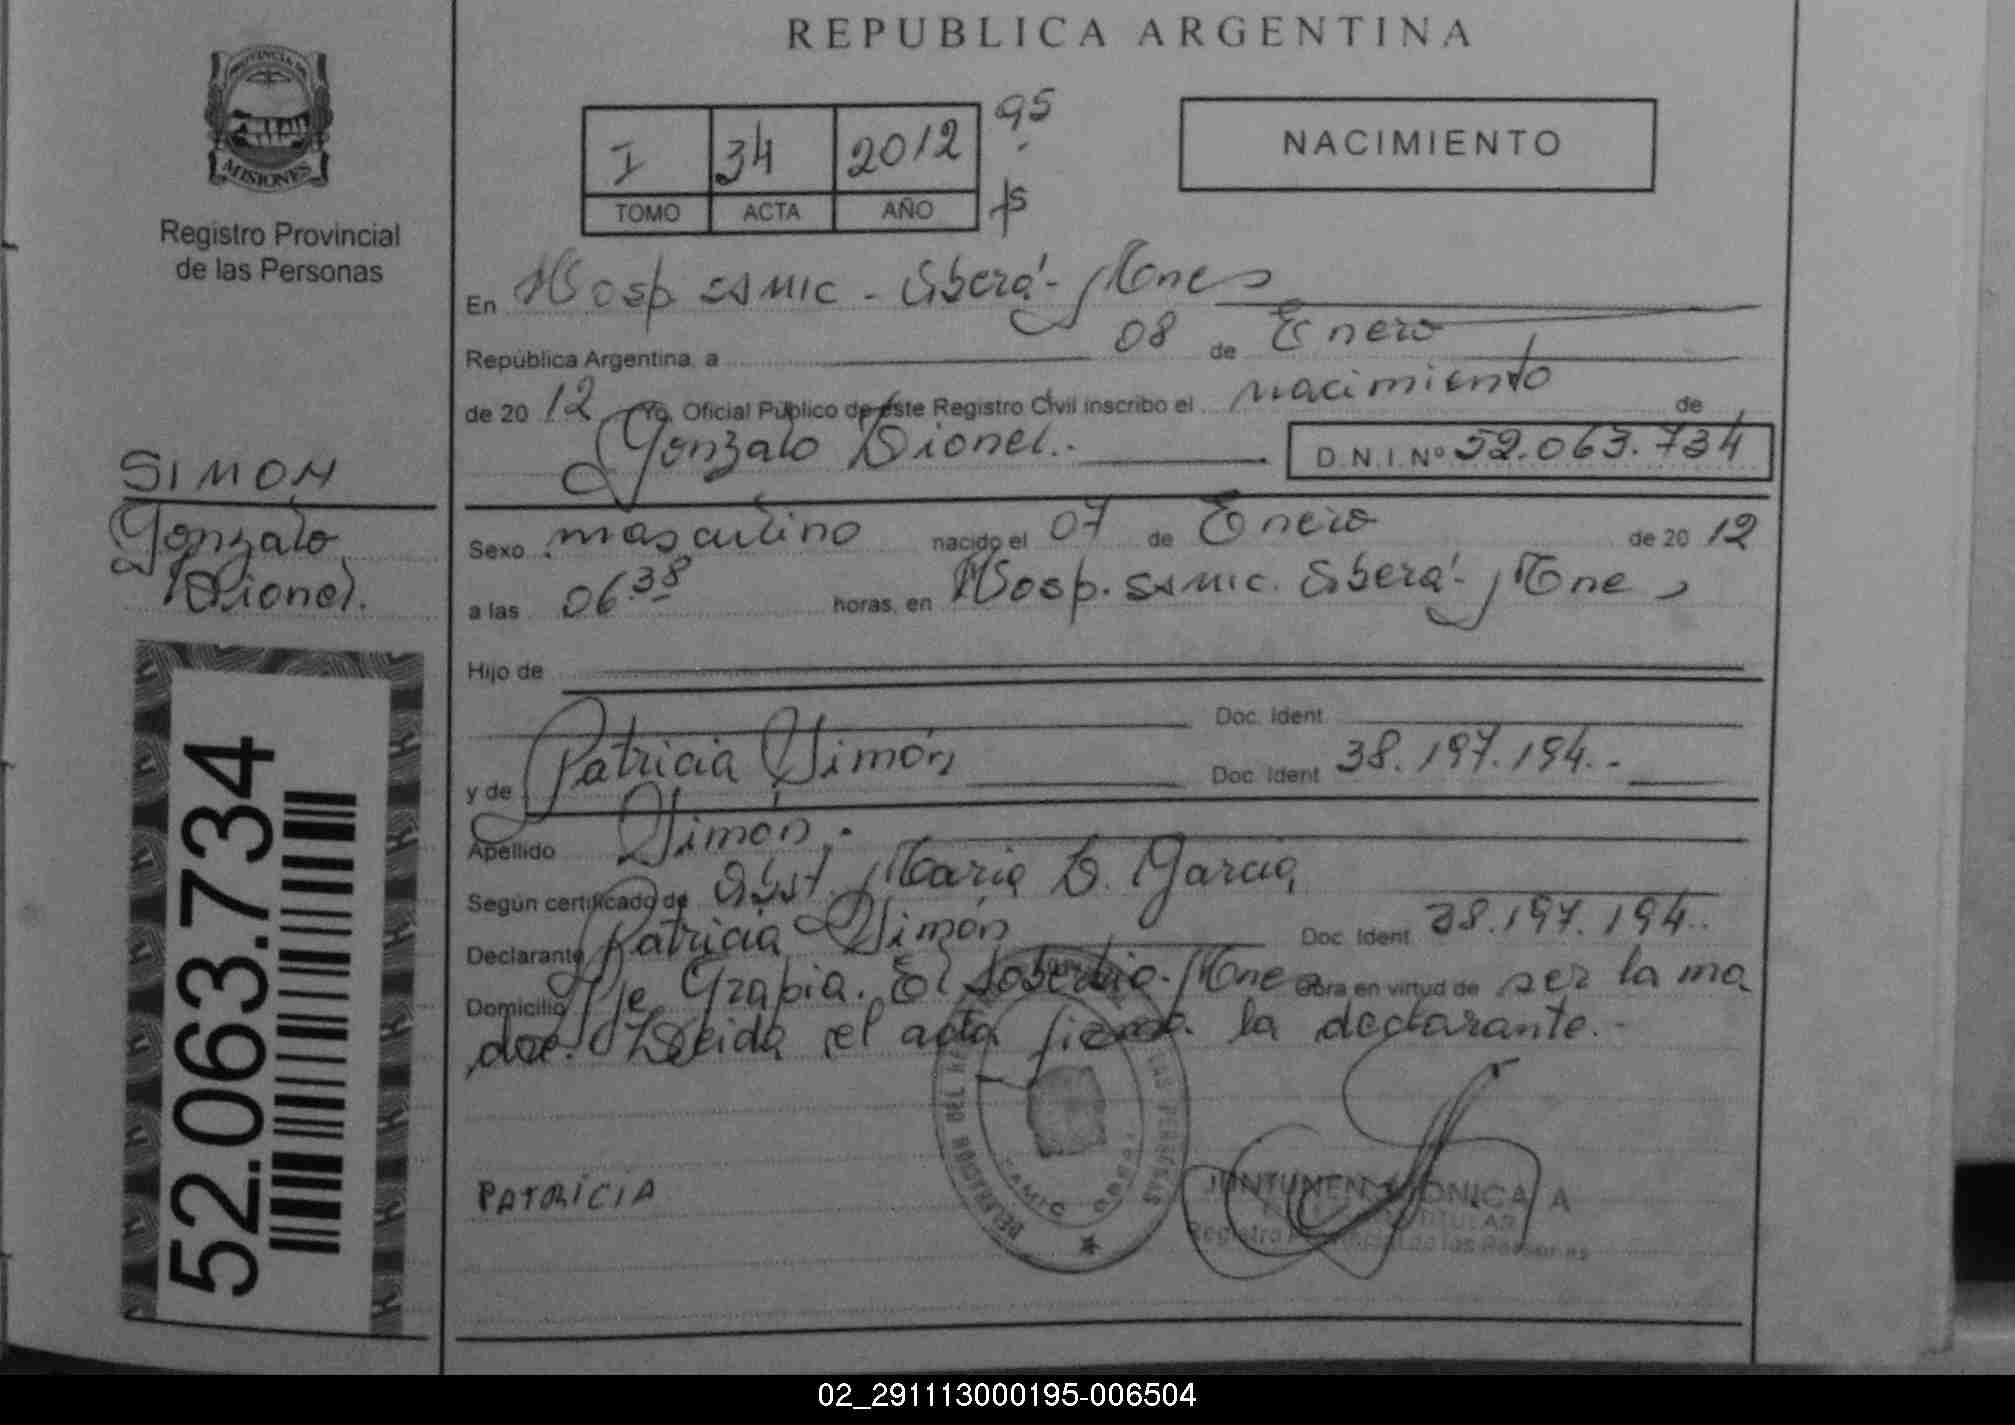 REPUBLICA ARGENTINA
PROVINCIA DE
MISIONES
Registro Provincial
de las Personas
I 34 2012 95
TOMO ACTA AÑO
NACIMIENTO
En Hosp. SAMIC - Oberá - Mnes
República Argentina, a 08 de Enero
de 2012 Yo, Oficial Público de este Registro Civil inscribo el nacimiento de
Gonzalo Lionel.- D.N.I. Nº 52.063.734
SIMON
Gonzalo
Lionel.
Sexo masculino nacido el 07 de Enero de 2012
a las 06.38 horas, en Hosp. SAMIC. Oberá - Mnes
Hijo de
Doc. Ident.
y de Patricia Simón Doc. Ident. 38.197.194.-
Apellido Simón.
Según certificado de Obst. Maria L. Garcia
Declarante Patricia Simón Doc. Ident. 38.197.194.-
Domicilio Pje Grapia. El Soberbio - Mnes Obra en virtud de ser la ma
dre. Leida el acta firma la declarante.-
52.063.734
PATRICIA
DELEGACION DEL LAS PERSONAS
SAMIC OBERA
JUNTUNEN MONICA A
TITULAR
Registro Provincial de las Personas
02_291113000195-006504